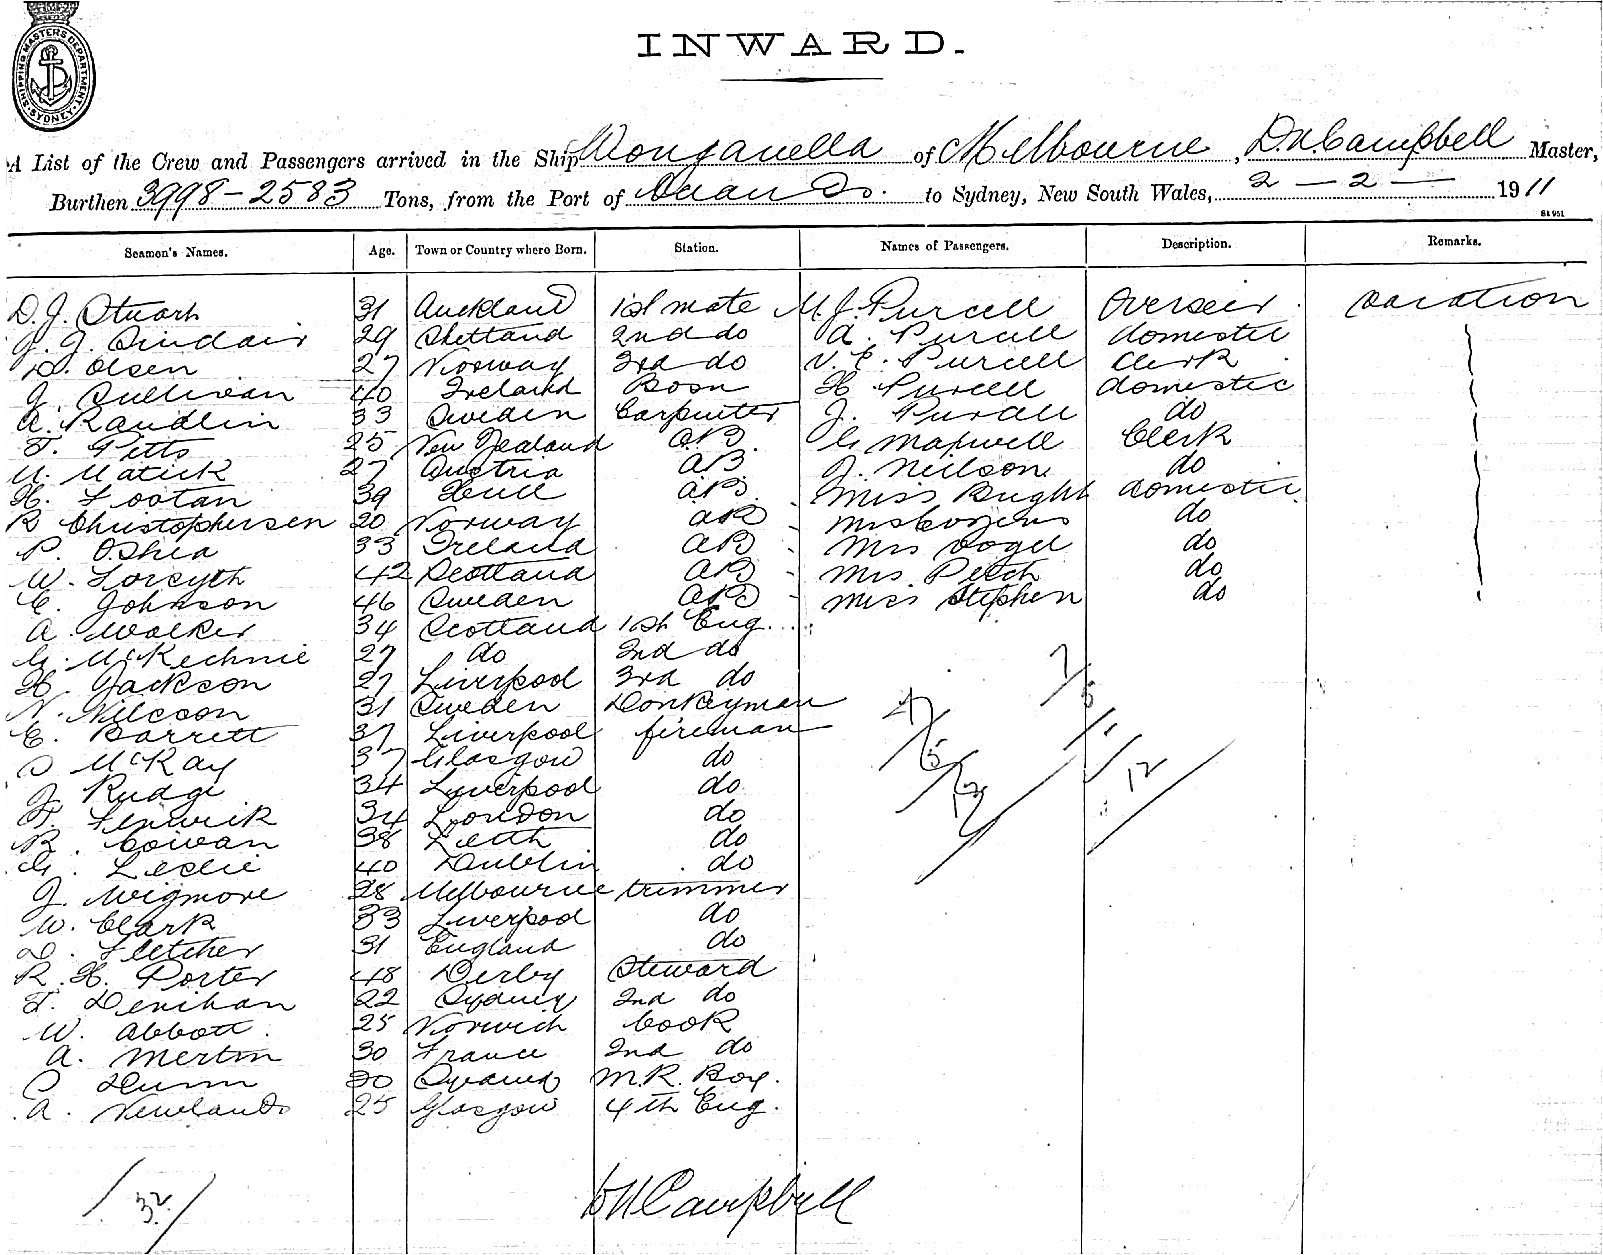 SHIPPING MASTERS DEPARTMENT. SYDNEY
INWARD.
A List of the Crew and Passengers arrived in the Ship Wonganella of Melbourne, D.N. Campbell Master,
Burthen 3998-2583 Tons, from the Port of Do. to Sydney, New South Wales, 2 - 2 - 1911
Seamen's Names. Age. Town or Country where Born. Station. Names of Passengers. Description. Remarks.
D. J. Stuart 31 Auckland 1st mate M. J. Purcell Overseer vacation
J. J. Sinclair 29 Shetland 2nd do A. Purcell domestic
D. Olsen 27 Norway 3rd do V. E. Purcell Clerk
J. Sullivan 40 Ireland Bosn H Purcell domestic
A. Randlin 33 Sweden Carpenter J. Purcell do
F. Pitts 25 New Zealand AB G Maxwell Clerk
M. Matick 27 Austria AB J. Neilson do
H. Lootan 39 Hull AB Miss Bught domestic
R Christophersen 20 Norway AB do
P. OShea 33 Ireland AB Mrs Vogel do
W. Forsyth 42 Scotland AB Mrs Petch do
C. Johnson 46 Sweden AB Miss Stephen do
A Walker 34 Scotland 1st Eng.
G. McKechnie 27 do 2nd do
H. Jackson 27 Liverpool 3rd do
N. Nilsson 31 Sweden Donkeyman
C. Barrett 37 Liverpool fireman
D McKay 37 Glasgow do
J. Rudge 34 Liverpool do
F. Fenwick 34 London do
R. Cowan 38 Leith do
G. Leslie 40 Dublin do
J. Wigmore 28 Melbourne trimmer
W. Clark 33 Liverpool do
D. Fletcher 31 England do
R. H. Porter 48 Derby Steward
F. Denihan 22 Sydney 2nd do
W. Abbott 25 Norwich Cook
A. Merton 30 France 2nd do
Dunn 20 Sydney M.R. Boy.
A. Newlands 25 Glasgow 4th Eng.
7
5
12
12
32
DN Campbell